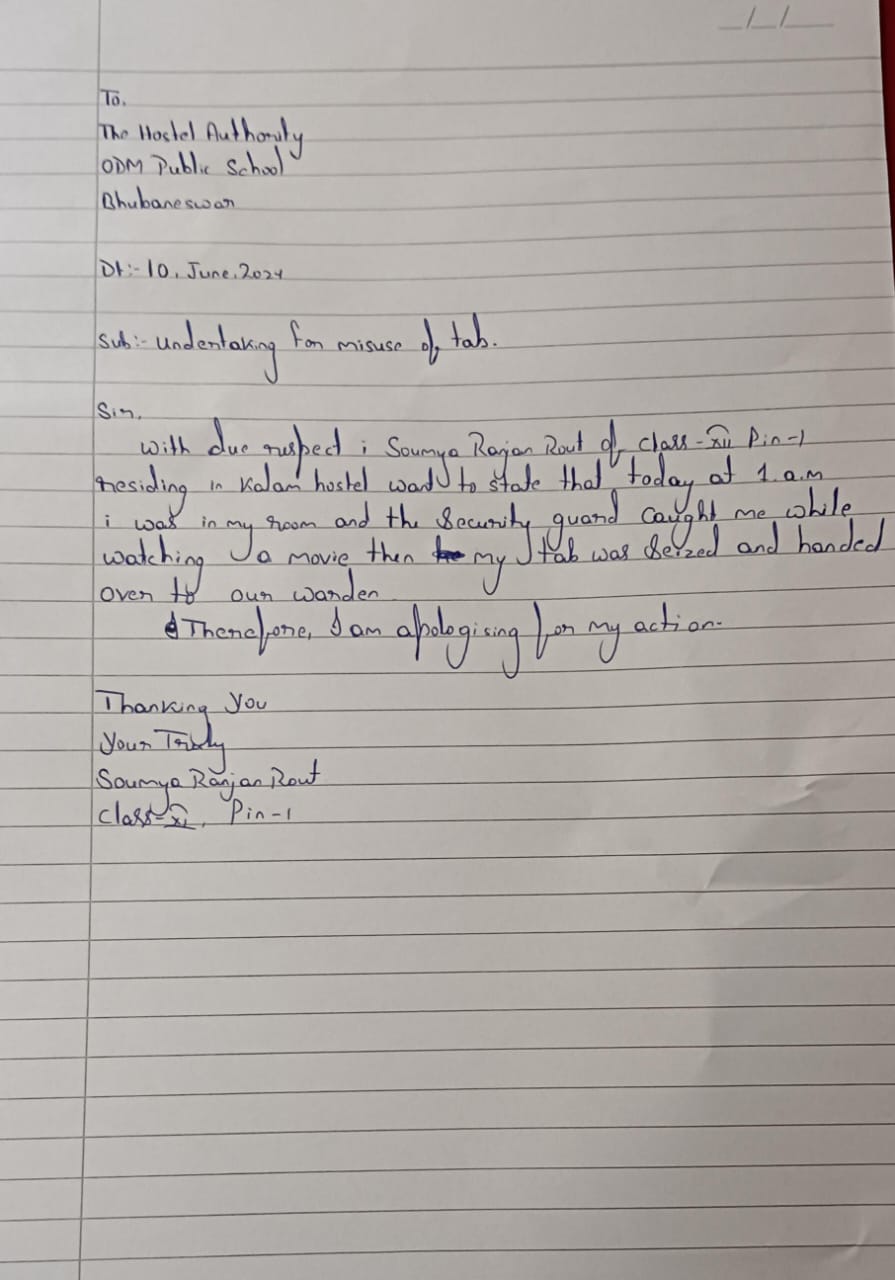 __/__/____
To,
The Hostel Authority
ODM Public School
Bhubaneswar
Dt:- 10, June, 2024
Sub:- undertaking for misuse of tab.
Sir,
with due respect i Soumya Ranjan Rout of class-XII Pin-1
residing in Kalam hostel want to state that today at 1 a.m
i was in my room and the security guard caught me while
watching a movie then my tab was seized and handed
over to our warden
Therefore, I am apologising for my action.
Thanking you
Your Truly
Soumya Ranjan Rout
class-XI, Pin-1